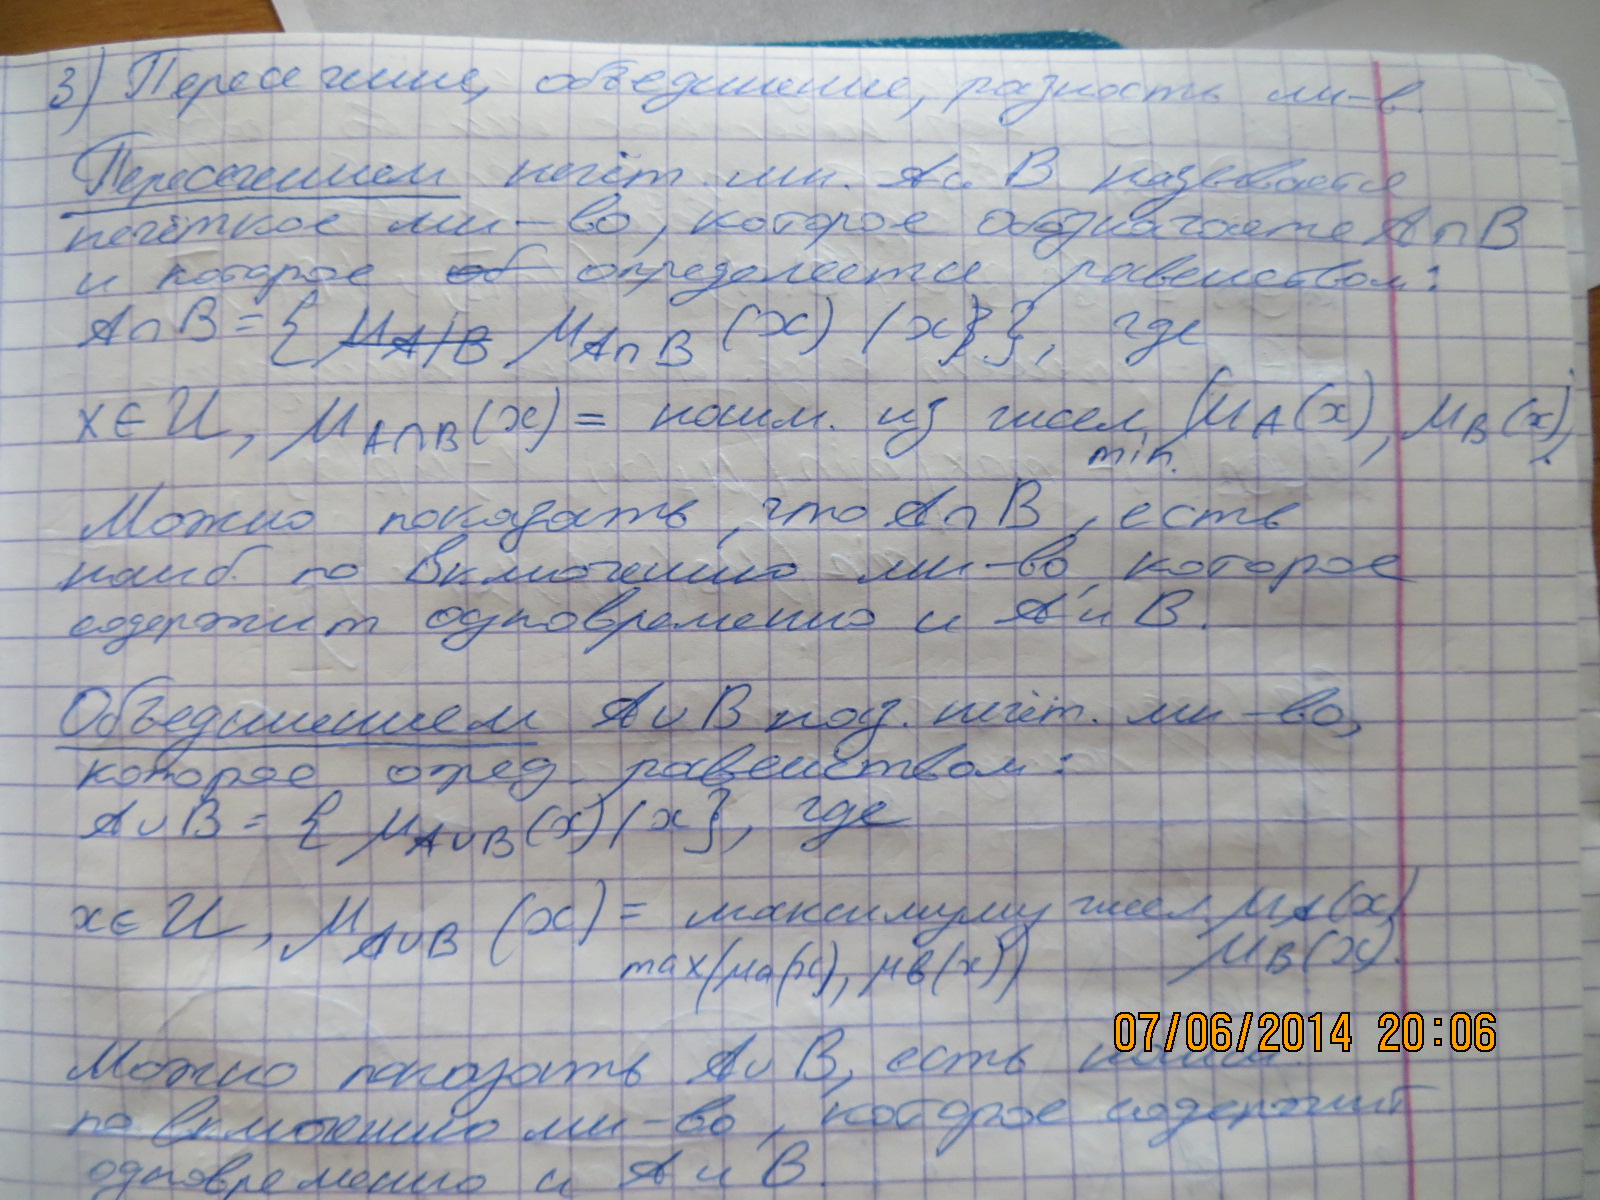 3) Пересечение, объединение, разность мн-в.
Пересечением нечёт. мн. A и B называется
нечёткое мн-во, которое обозначаете A∩B
и которое об определяется равенством:
A∩B = { μA|B μA∩B (x) (x}}, где
x∈U, μA∩B(x) = наим. из чисел (μA(x), μB(x)).
min.
Можно показать, что A∩B, есть
наиб. по включению мн-во, которое
содержит одновременно и A и B.
Объединением A∪B наз. нечёт. мн-во,
которое опред. равенством:
A∪B = { μA∪B(x) (x}, где
x∈U, μA∪B (x) = максимуму чисел μA(x)
max(μa(x), μв(x)) μB(x).
07/06/2014 20:06
Можно показать A∪B, есть наим.
по включению мн-во, которое содержит
одновременно и A и B.